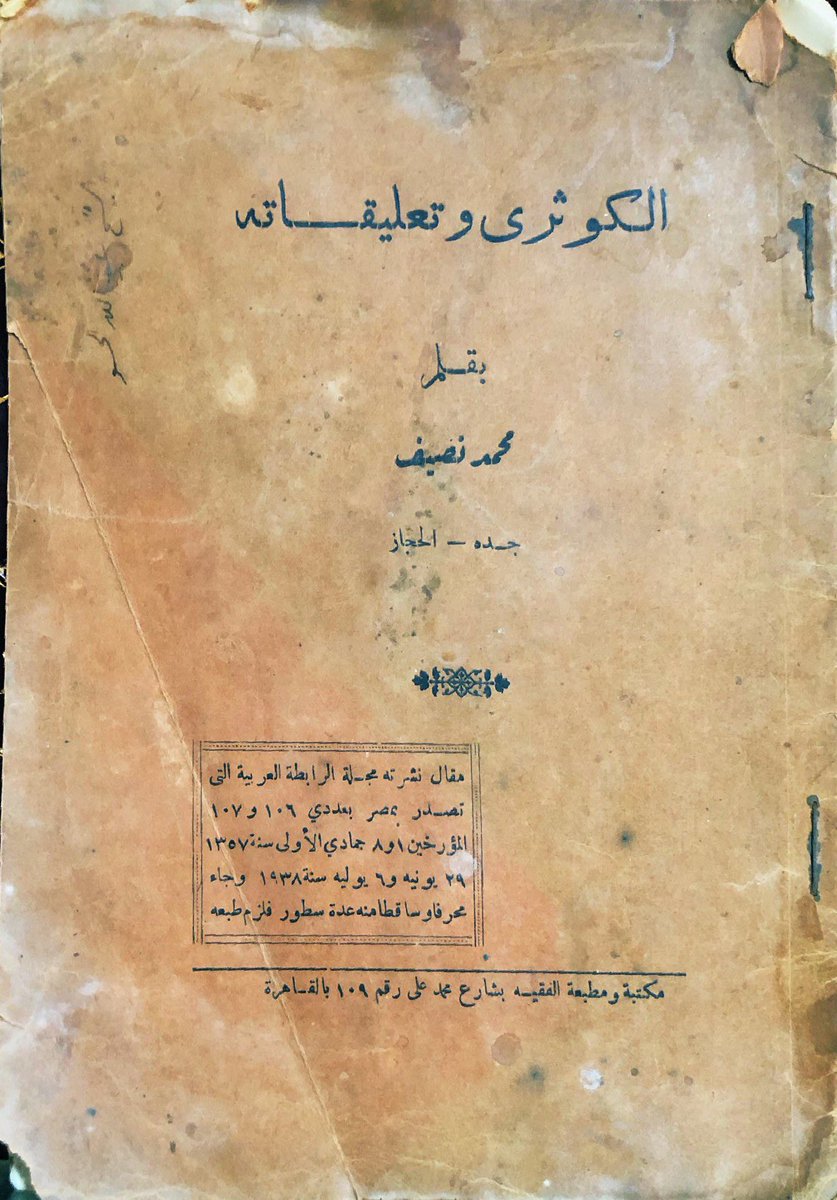 الكوثرى وتعليقاته
بقلم
محمد نصيف
جده - الحجاز
مقال نشرته مجلة الرابطة العربية التى
تصدر بمصر بعددي ١٠٦ و ١٠٧
المؤرخين ١ و ٨ جمادي الأولى سنة ١٣٥٧
٢٩ يونيه و ٦ يوليه سنة ١٩٣٨ وجاء
محرفا وساقطا منه عدة سطور فلزم طبعه
مكتبة ومطبعة الفقيه بشارع محمد على رقم ١٠٩ بالقاهرة